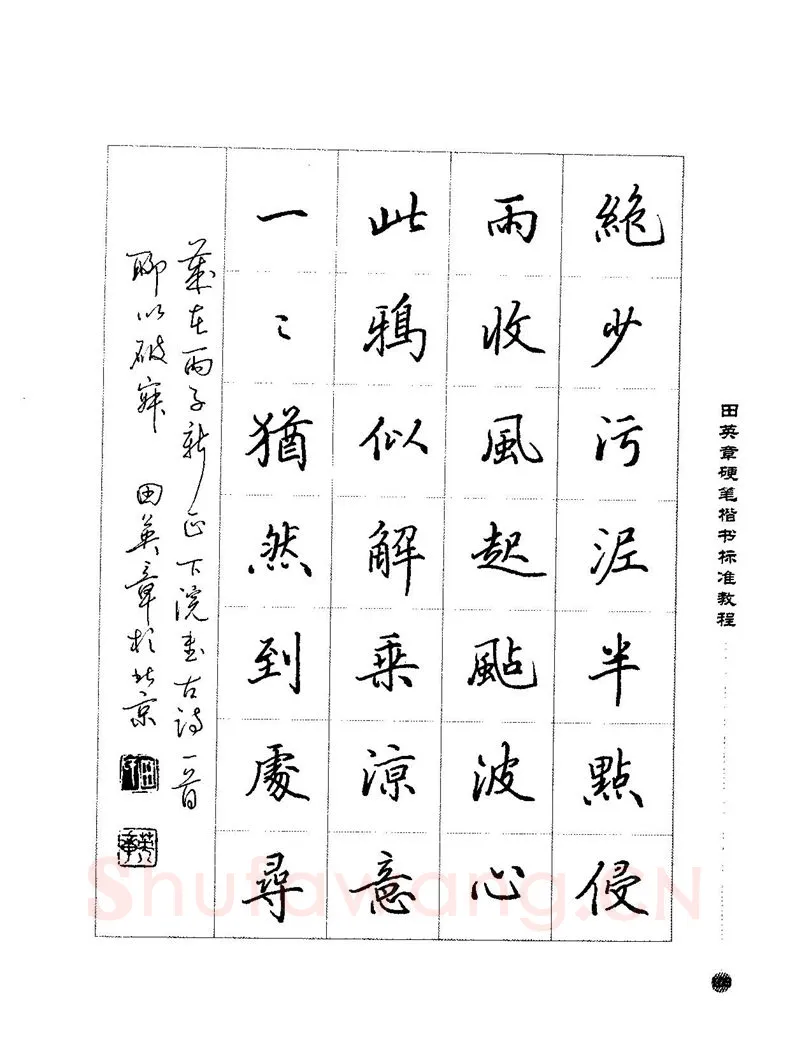 絶少污泥半點侵
雨收風起颭波心
此鴉似解乘涼意
一々猶然到處尋
歲在丙子新正下浣書古詩一首
聊以破寐 田英章於北京
田英章硬笔楷书标准教程
Shufawang.CN